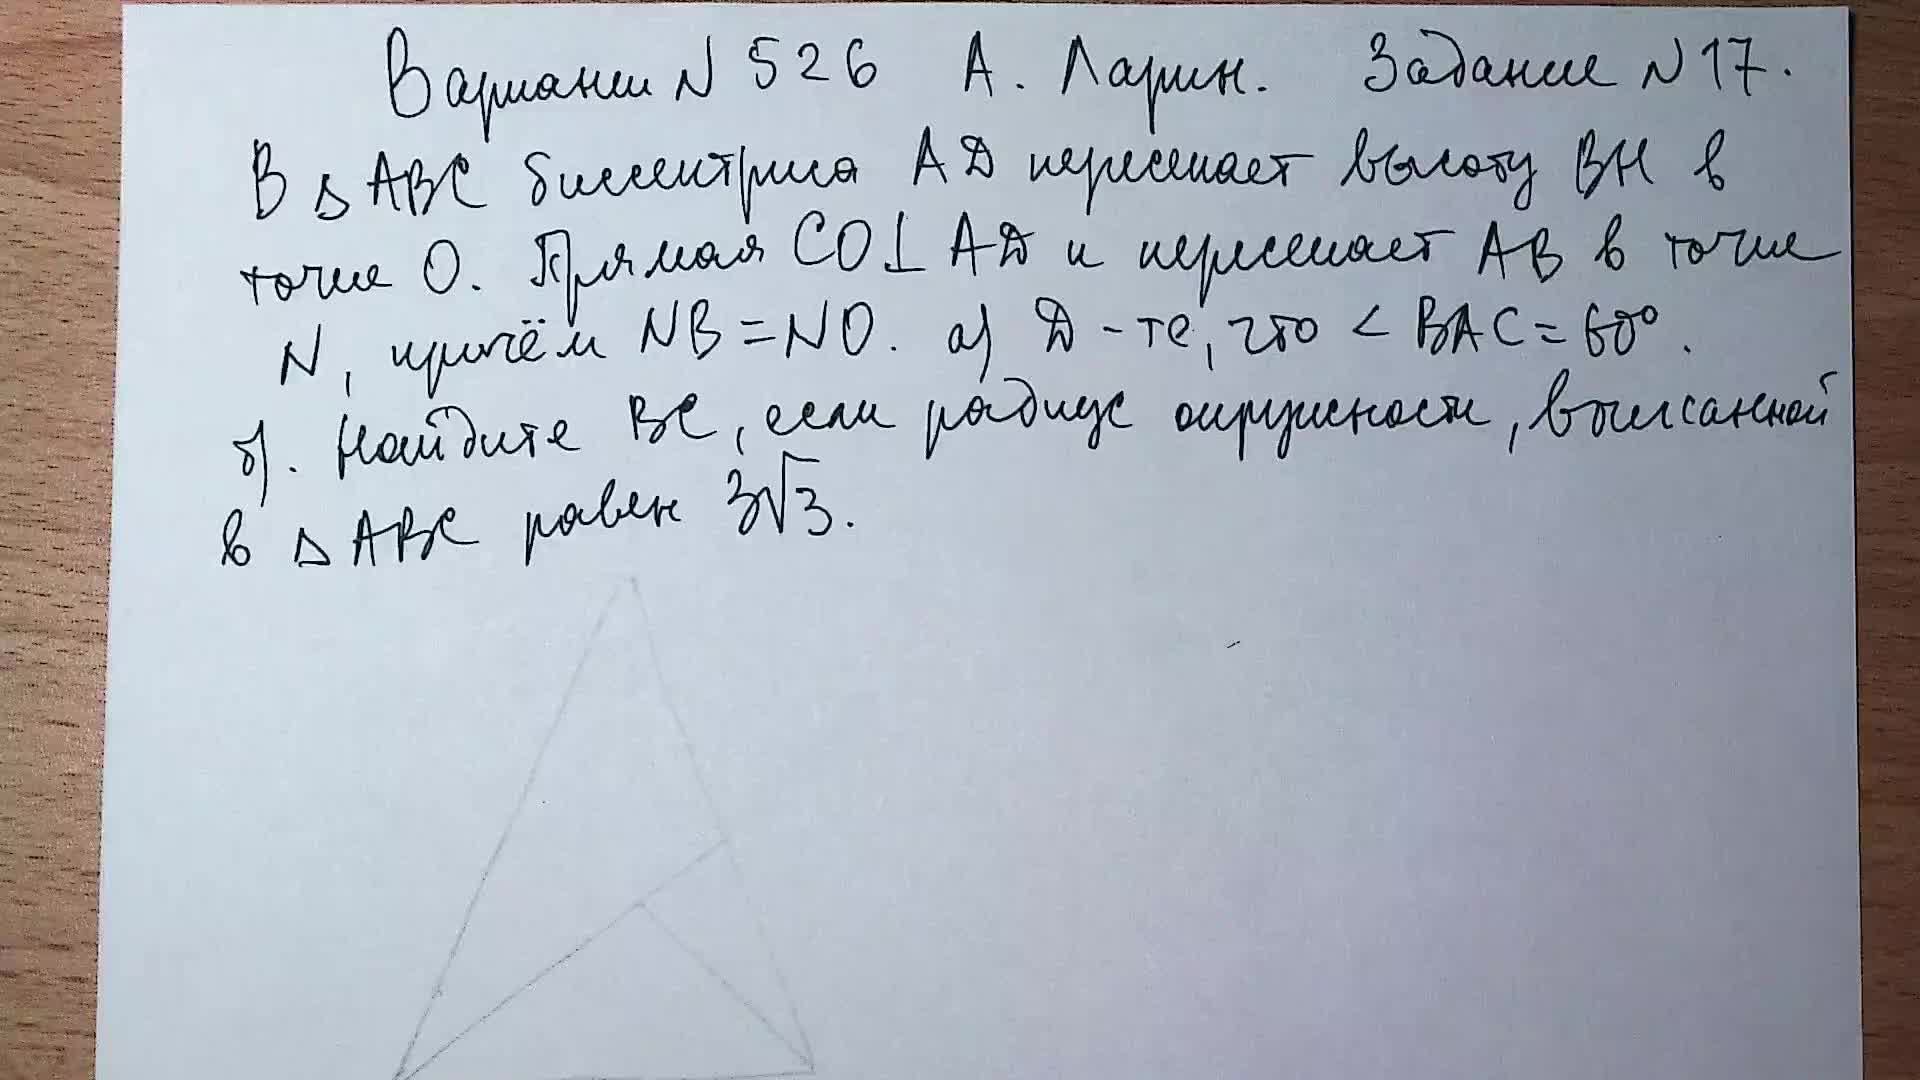 Вариант N 526 А. Ларин. Задание N 17.
В △ ABC биссектриса AD пересекает высоту BH в
точке O. Прямая CO⊥AD и пересекает AB в точке
N, причём NB=NO. а) Д-те, что <BAC=60°.
б). Найдите BC, если радиус окружности, вписанной
в △ ABC равен 3√3.